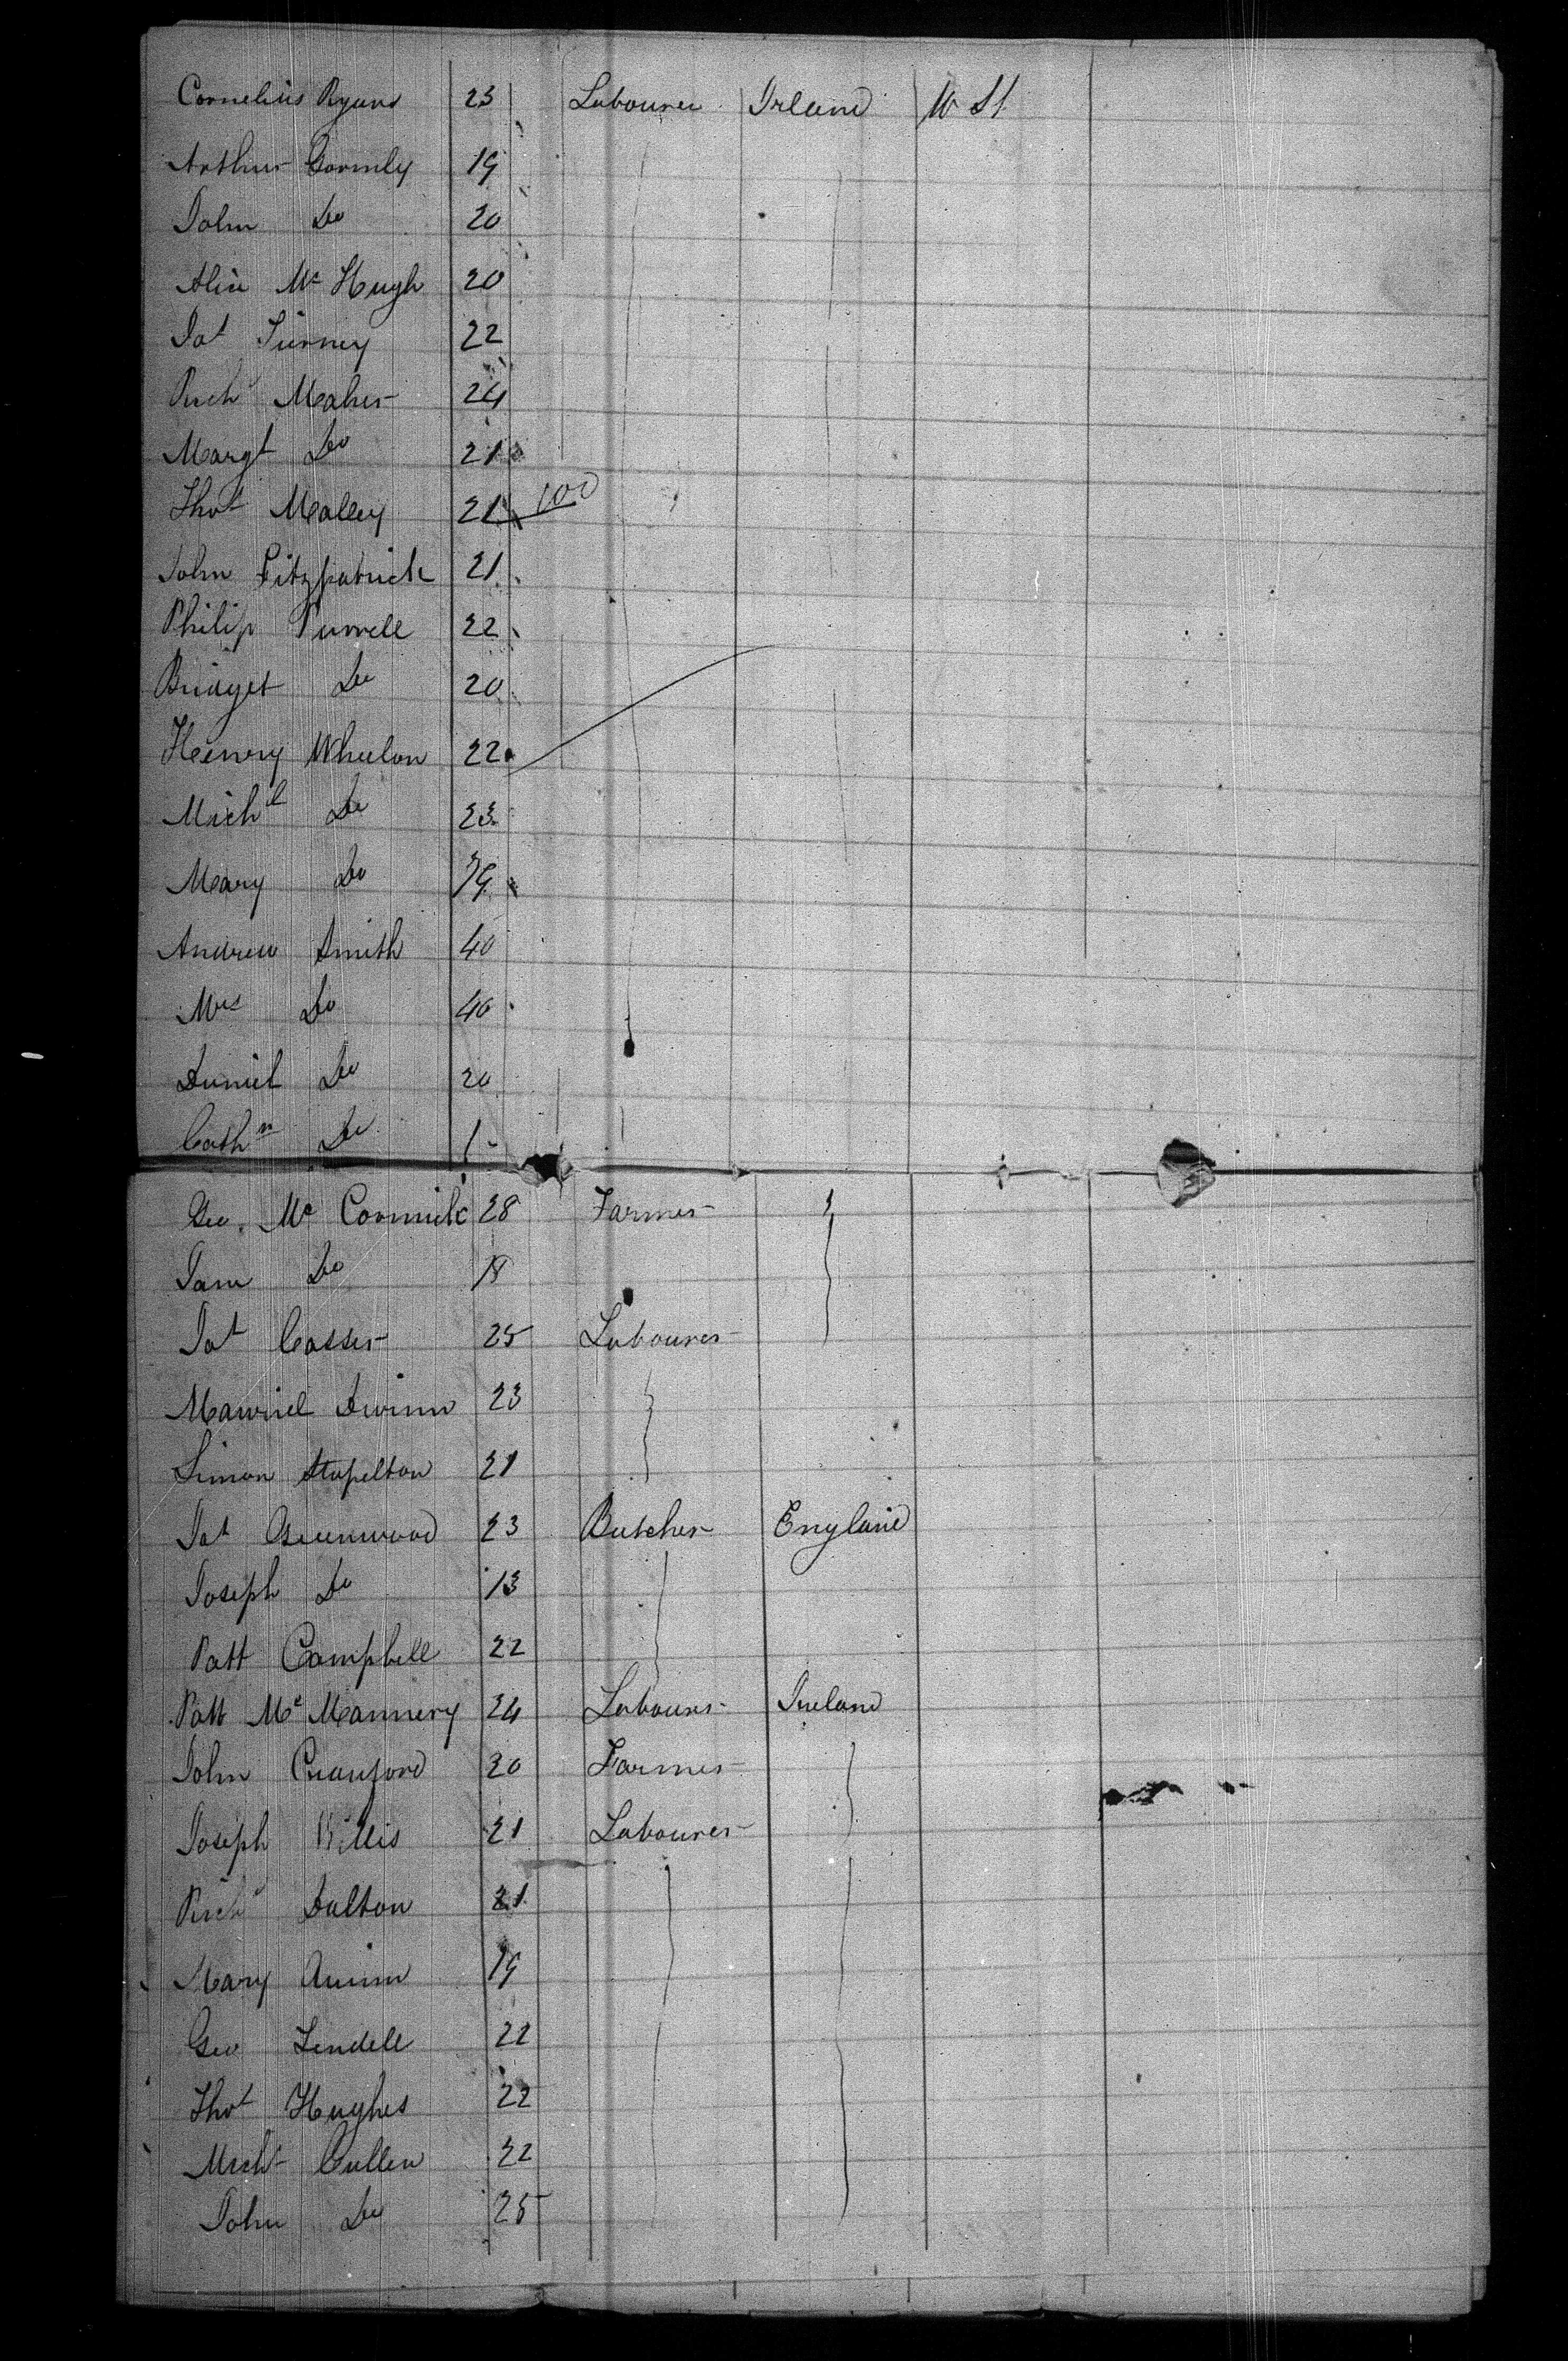 Cornelius Ryan 23 Labourer Irland U St
Arthur Gormly 19
John Do 20
Alice Mc Hugh 20
Jas Tierney 22
Richd Maher 24
Margt Do 21
Thos Malley 21 100
John Fitzpatrick 21
Philip Purcell 22
Bridget Do 20
Henry Wheelon 22
Michl Do 23
Mary Do 19
Andrew Smith 40
Mrs Do 40
Daniel Do 20
Cathn Do 1
Geo. Mc Cormick 28 Farmer
Jane Do 18
Jas Casser 25 Labourer
23
Simon Stapelton 21
Jas Greenwood 23 Butcher England
Joseph Do 13
Patt Campbell 22
Patt Mc Mannery 24 Labourer Ireland
John Crauford 20 Farmer
Joseph Willis 21 Labourer
Richd Dalton 21
Mary Quinn 19
Geo Lendell 22
Thos Hughes 22
Michl Cullen 22
John Do 25